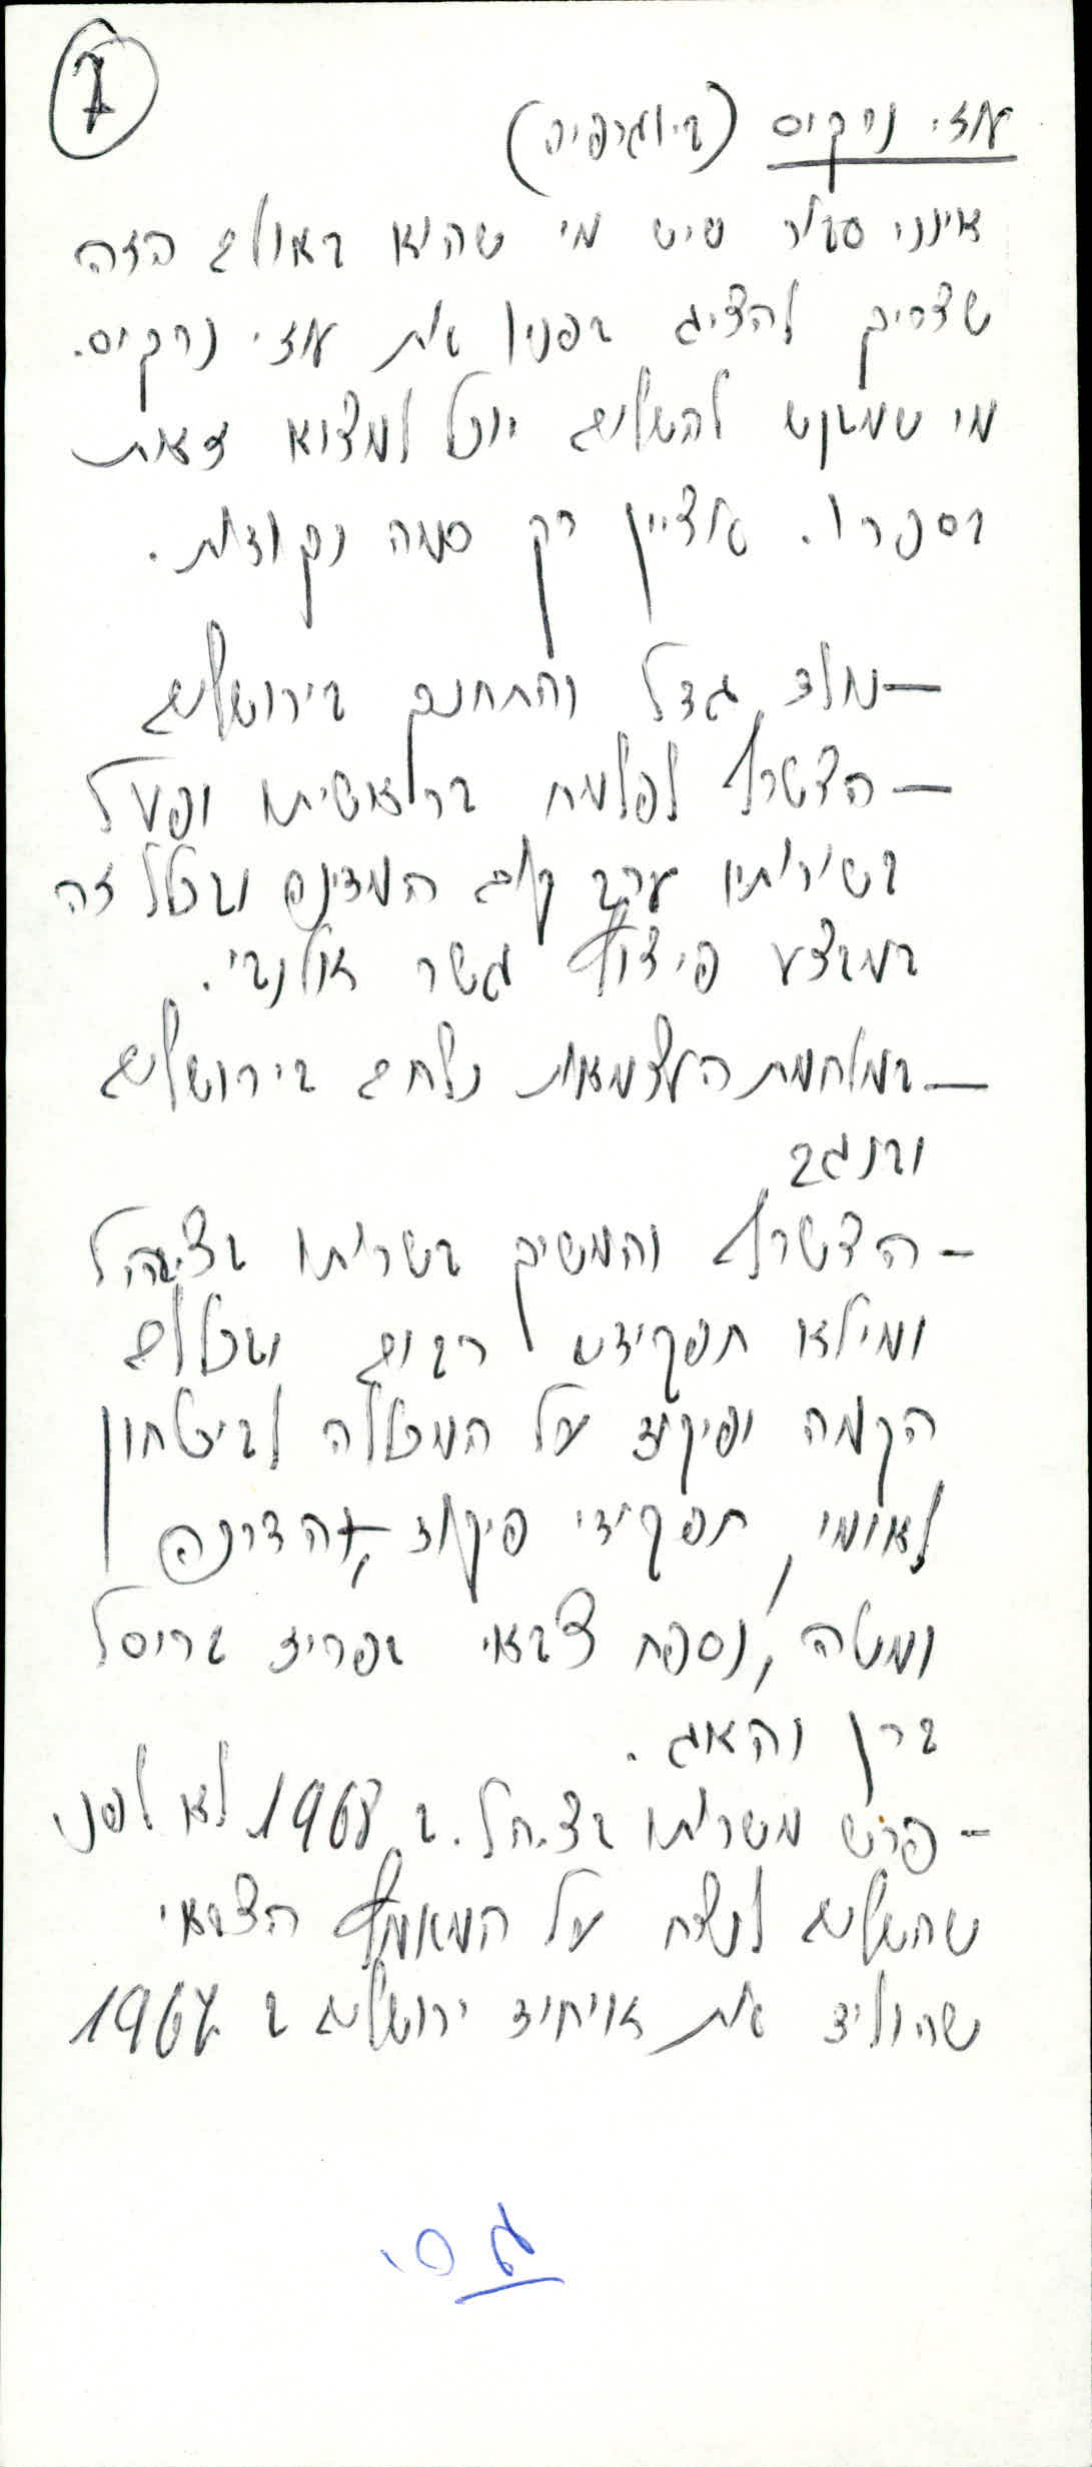 7
עוזי נרקיס (ביוגרפיה)
אינני סבור שיש מי שהוא באולם הזה
שצריך להציג בפניו את עוזי נרקיס.
מי שמבקש להשלים יוכל למצוא זאת
בספרו. אציין רק כמה נקודות.
– נולד, גדל והתחנך בירושלים
– הצטרף לפלמח בראשיתו ופעל
בשירותיו ערב קום המדינה ובכלל זה
במבצע פיצוץ גשר אלנבי.
– במלחמת העצמאות נלחם בירושלים
ובנגב
– הצטרף והמשיך בשרותו בצ.ה.ל
ומילא תפקידים רבים ובכללם
הקמה ופיקוד על המכללה לביטחון
לאומי, תפקידי פיקוד, הדרכה
ומטה, נספח צבאי בפריז בריסל
ברן והאג.
– פרש משרותו בצ.ה.ל. ב 1968 לא לפני
שהשלים לנצח על המאמץ הצבאי
שהוליד את איחוד ירושלים ב 1967